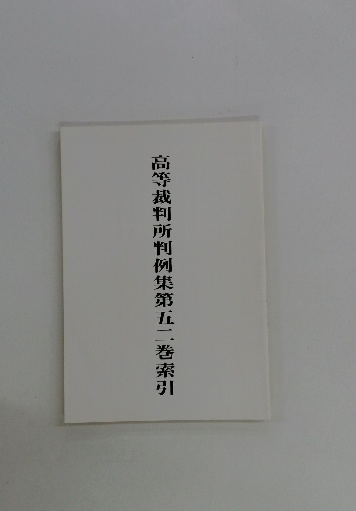 高等裁判所判例集第五二巻索引